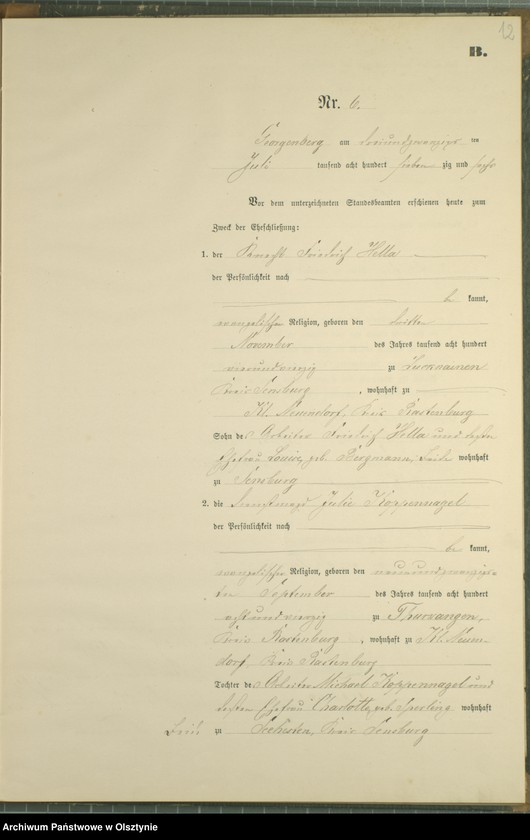 12
B.
Nr. 6.
Georgenberg am dreiundzwanzigsten
Juli tausend acht hundert sieben zig und sechs
Vor dem unterzeichneten Standesbeamten erschienen heute zum
Zweck der Eheschließung:
1. der Knecht Friedrich Hella
der Persönlichkeit nach
be kannt,
evangelischer Religion, geboren den dritten
November des Jahres tausend acht hundert
vierundvierzig zu
Kreis Sensburg, wohnhaft zu
Kl. Neundorf, Kreis Rastenburg
Sohn des Arbeiter Friedrich Hella und dessen
Ehefrau Louise, geb. Bergmann, beide wohnhaft
zu Sensburg
2. die Dienstmagd Julie Koppennagel
der Persönlichkeit nach
be kannt,
evangelischer Religion, geboren den neunundzwanzigs-
ten September des Jahres tausend acht hundert
achtundvierzig zu
Kreis Rastenburg, wohnhaft zu Kl. Neun-
dorf, Kreis Rastenburg
Tochter des Arbeiter Michael Koppennagel und
dessen Ehefrau Charlotte, geb. Sperling wohnhaft
beide zu Sechesten, Kreis Sensburg
Archiwum Państwowe w Olsztynie